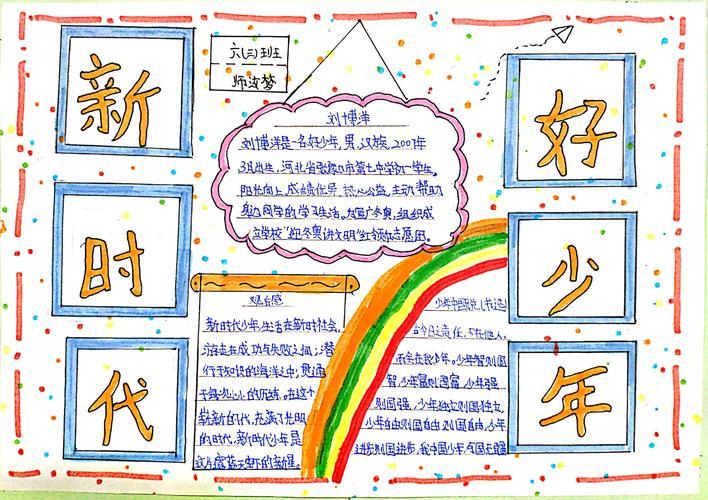 新时代
好少年
六(三)班
师汝梦
刘博洋
刘博洋是一名好少年,男,汉族,2007年
3月出生,河北省张家口市第七中学初一学生。
阳光向上,成绩优异,热心公益,主动帮助
身边同学的学习生活。为推广冬奥,组织成
立学校“迎冬奥讲文明”红领巾志愿团。
观后感
新时代少年,生活在新时社会,
游走在成功与失败之间,潜
行于知识的海洋之中,
的历练。在这个
崭新的代,充满了光明
的时代,新时代少年是
这片蔚蓝天空下的新星。
少年中国说(节选)
故今日之责任,不在他人,
而全在我少年。少年智则国
智,少年富则国富,少年强
则国强,少年独立则国独立,
少年自由则国自由,少年
进步则国进步,我中国少年,与国无疆